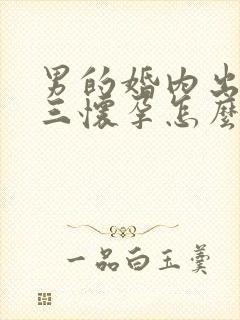 男的婚内出
三怀孕怎麼
一品白玉羹